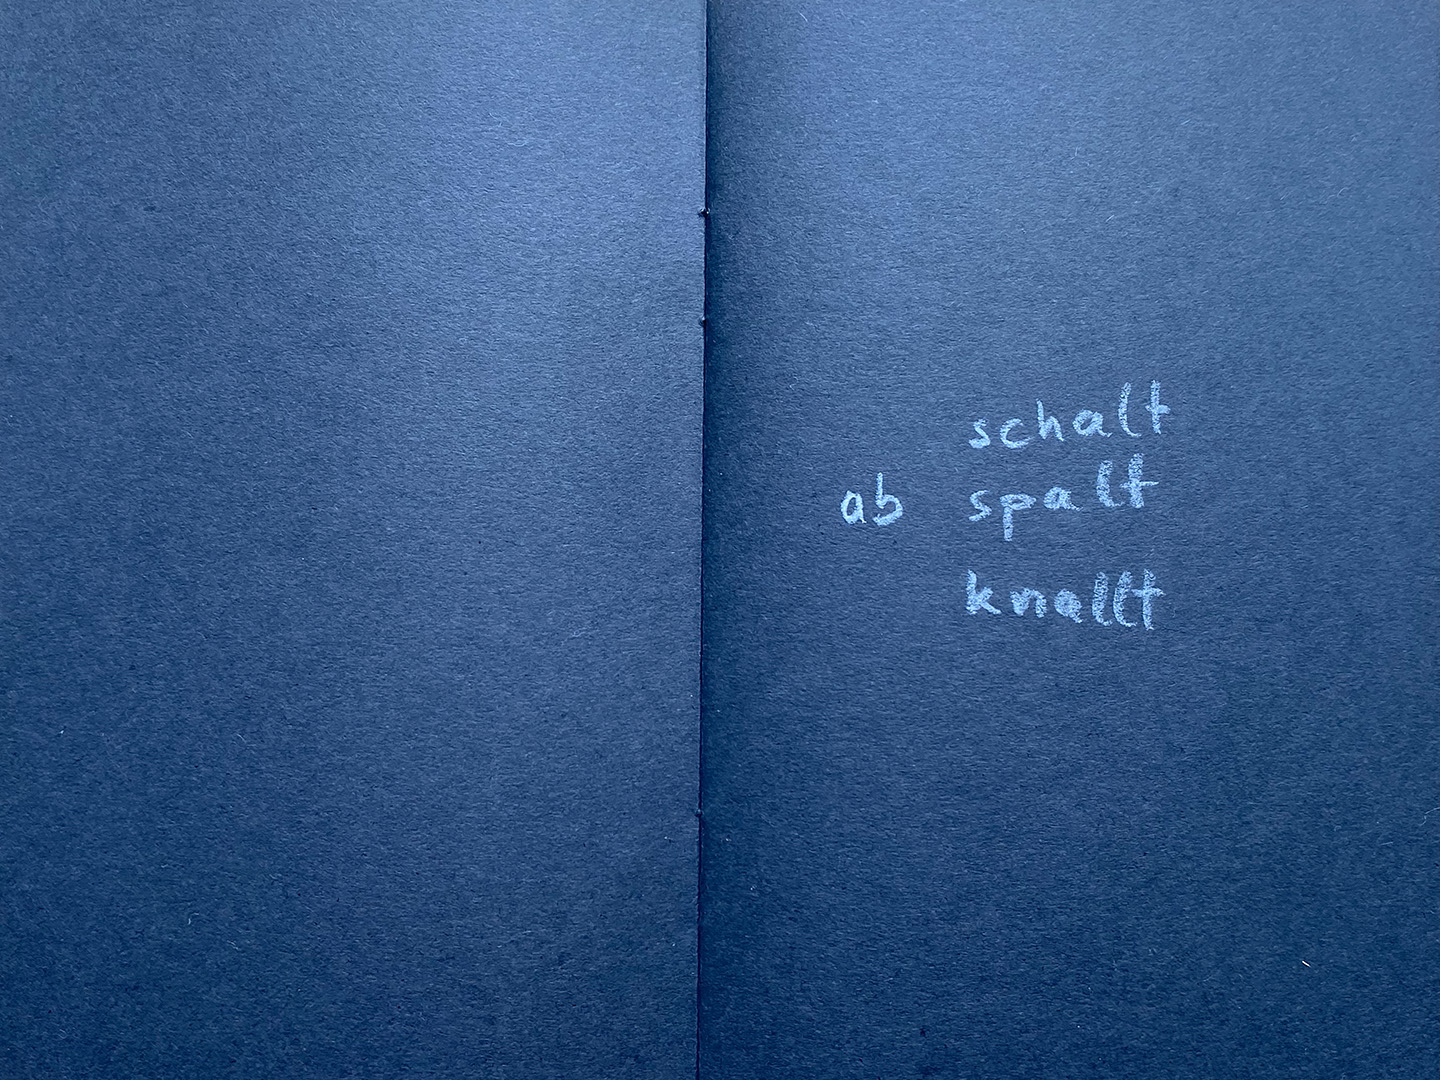 schalt
ab spalt
knallt